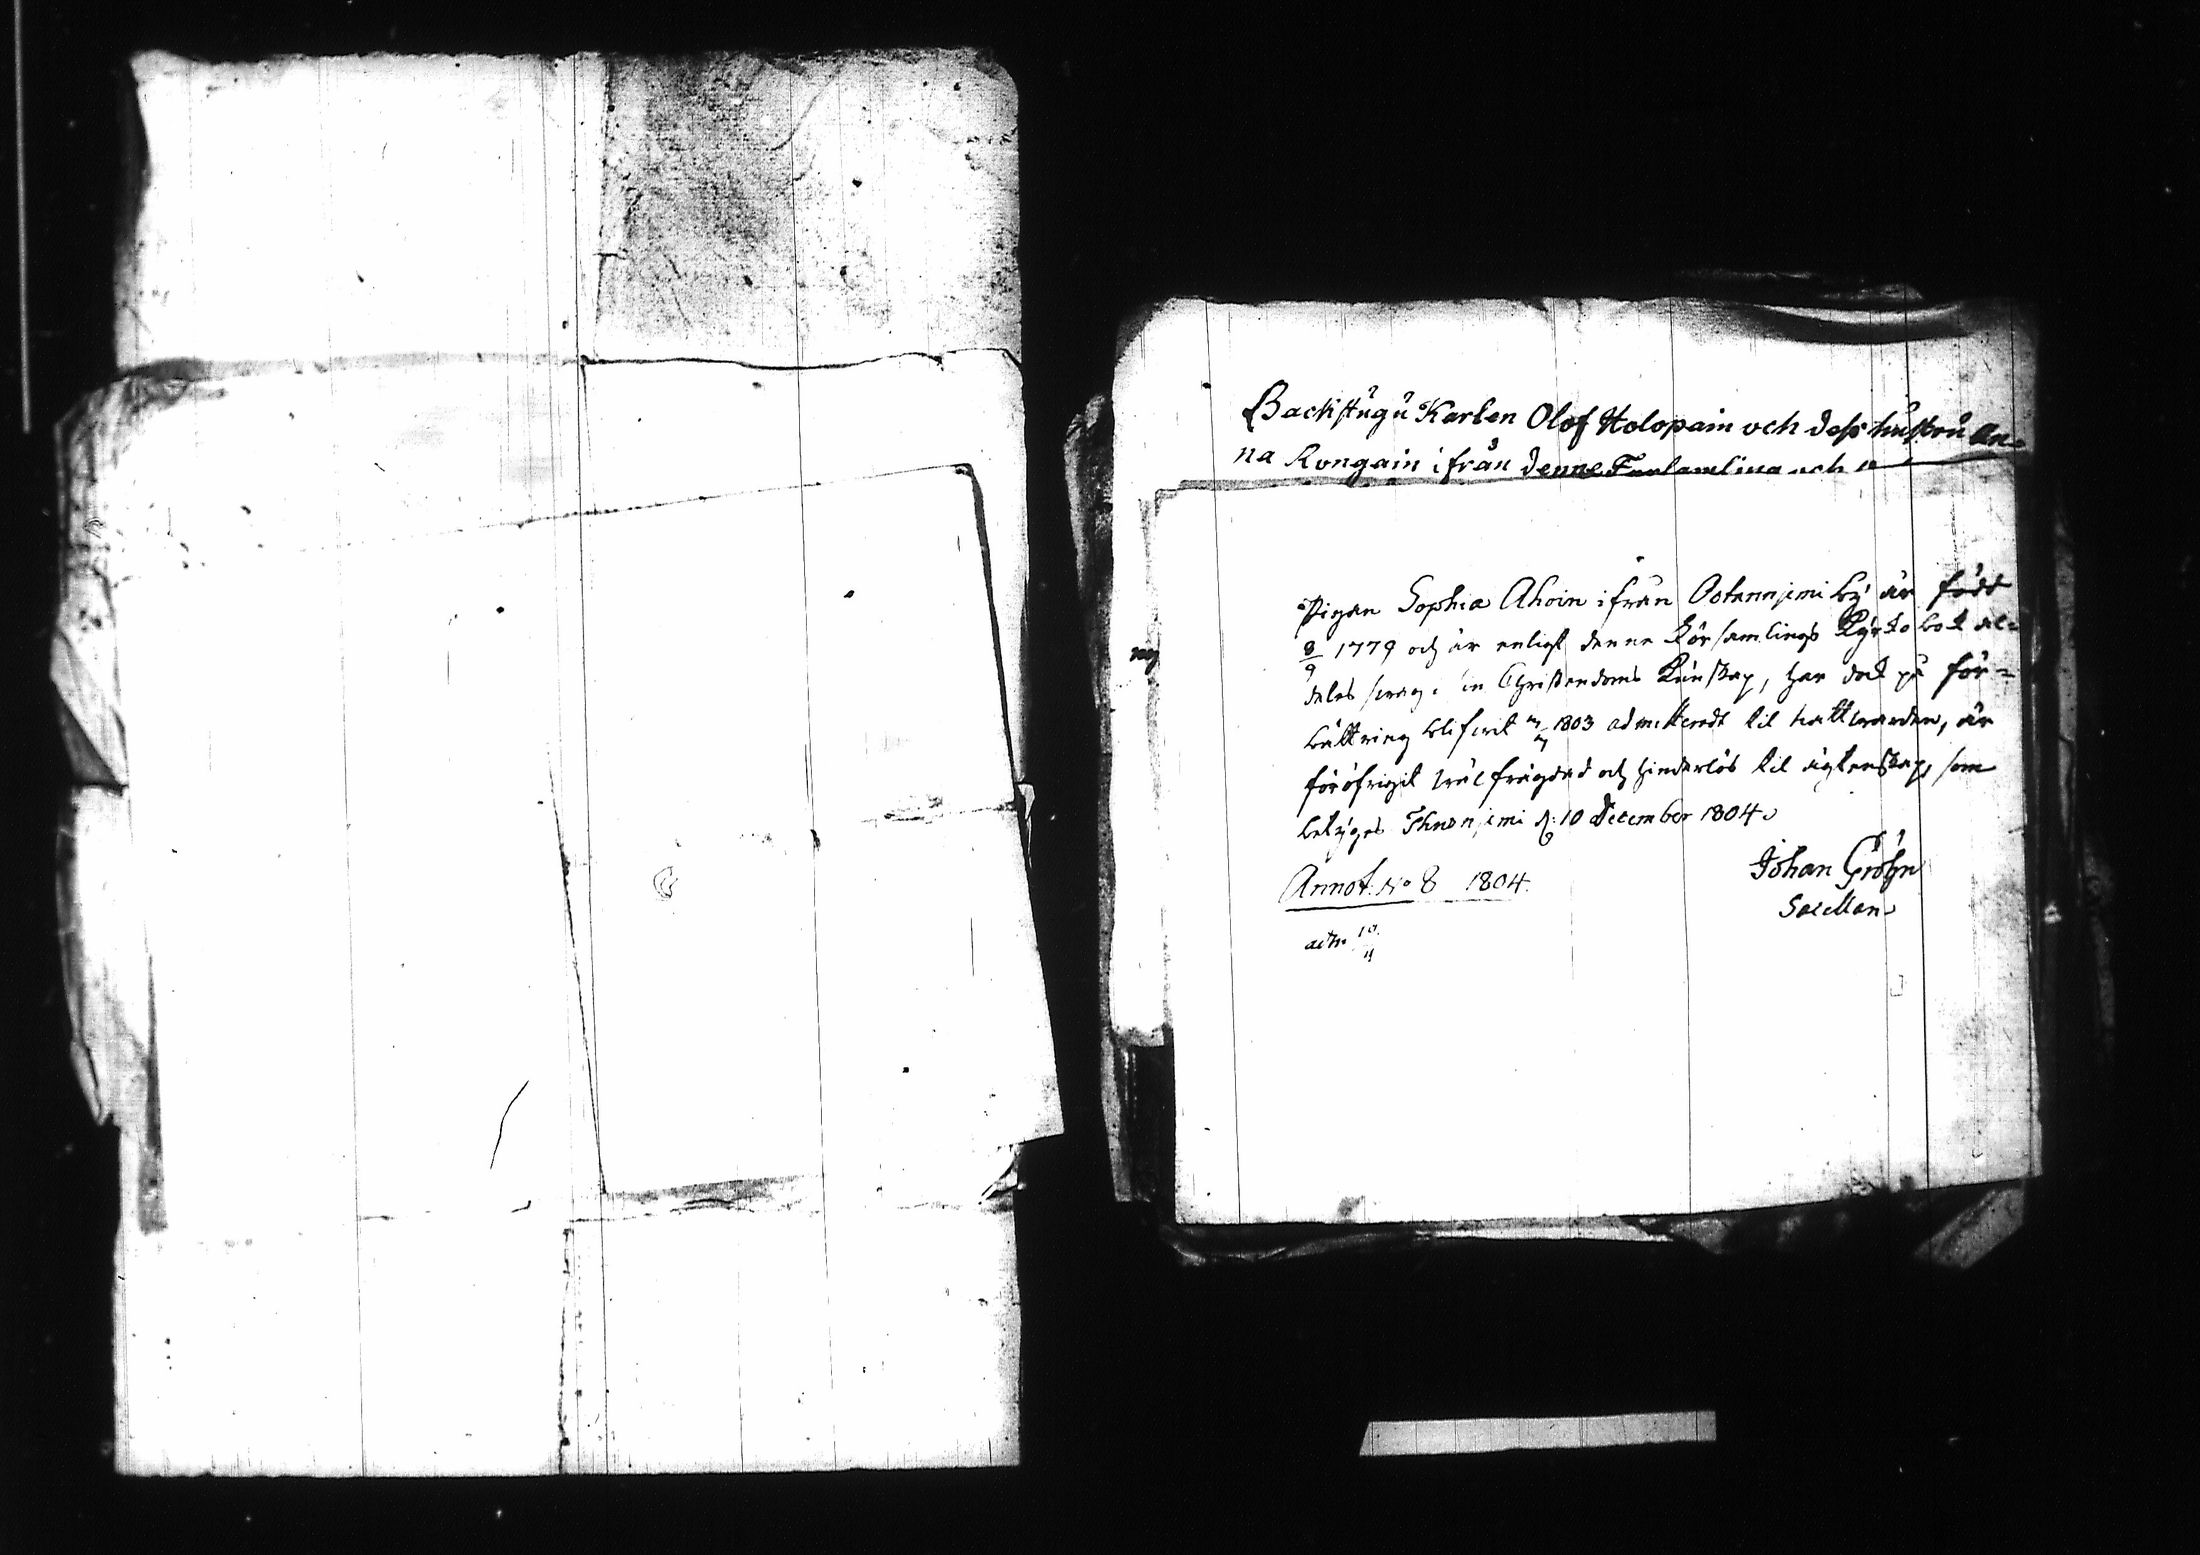 Backstugu Karlen Olof Holopain och dess hustru An=
na Rongain ifrån denne Församling och
Pigan Sophia Ahoin ifrån Ostannjemi by är född
8/9 1779 och är enligt denne Församlings Kyrko bok al=
deles svag i sin Christendoms Kunskap, har dock på för=
bättring blifvit 1803 admitteradt til nattwarden, är
föröfrigit wälfrägdad och hinderlös til ägtenskap, som
betyges Thusnjemi d: 10 December 1804.
Johan Gröhn
Sacellan.
Annot: No 8 1804.